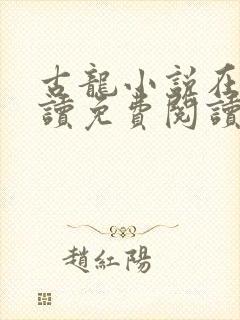 古龍小說在
讀免費閱讀
趙紅陽